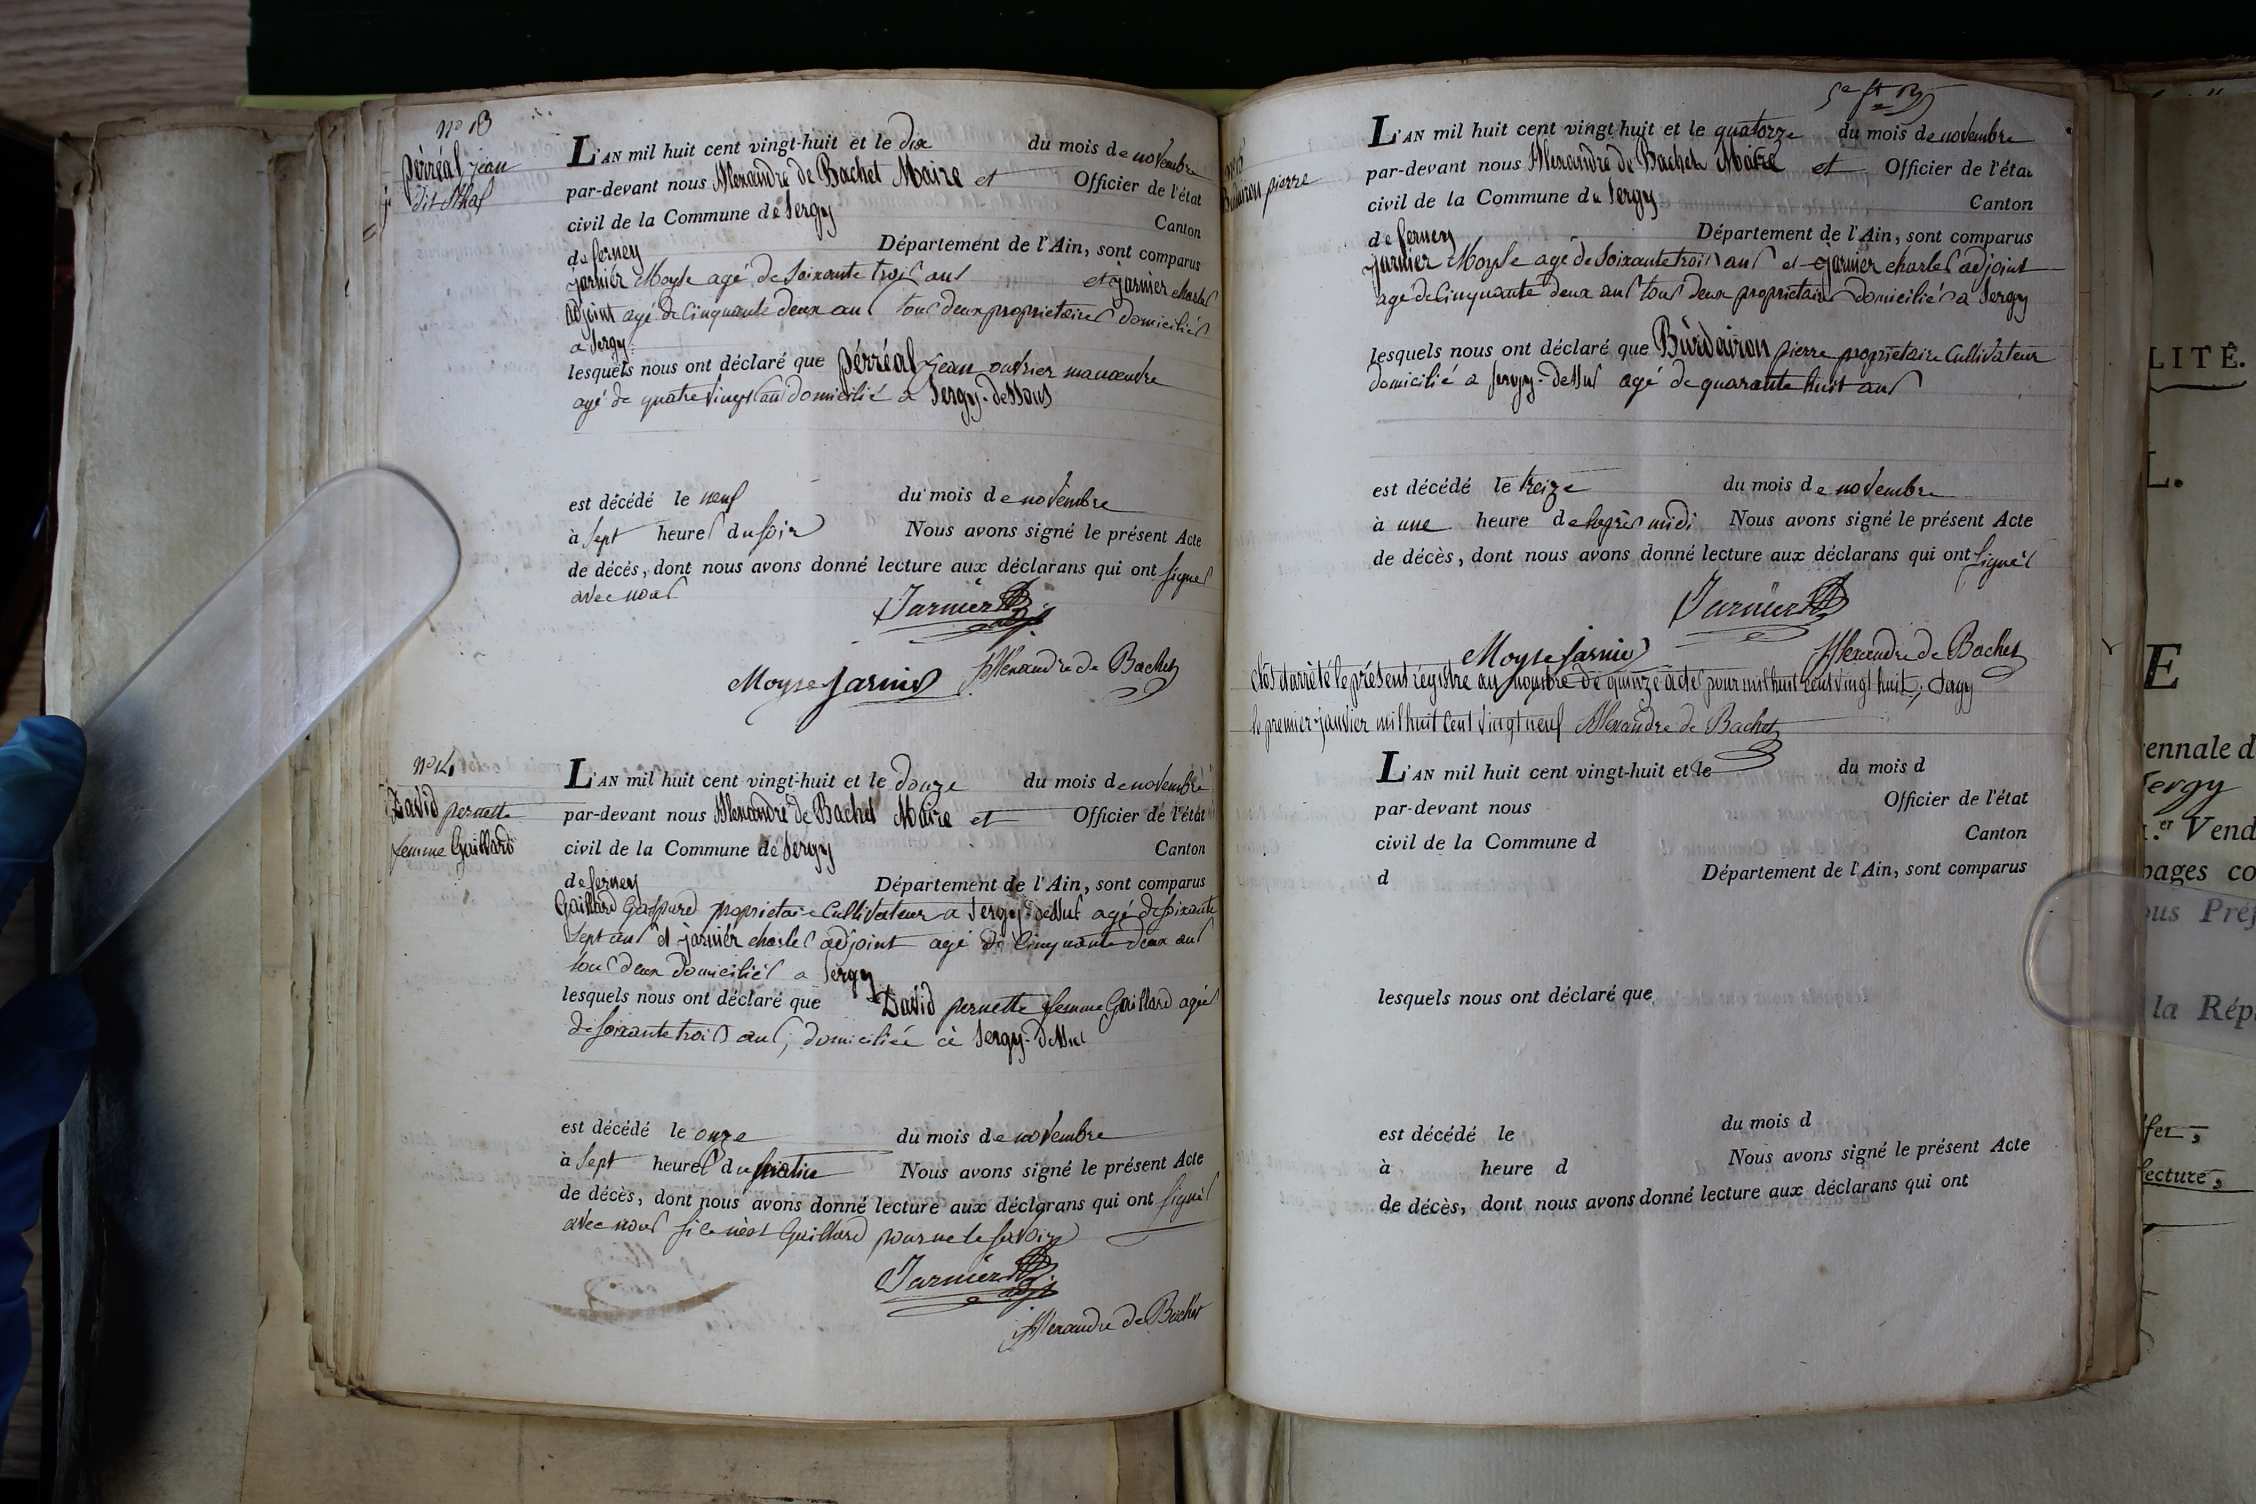 N° 13
Pérréal jean
dit
L'AN mil huit cent vingt-huit et le dix du mois de novembre
par-devant nous Alexandre de Bachet Maire et Officier de l'état
civil de la Commune de Sergy Canton
de ferney Département de l'Ain, sont comparus
jarnier Moyse agé de Soixante trois ans et jarnier charles
adjoint agé de Cinquante deux ans tous deux proprietaires domiciliés
a Sergy.
lesquels nous ont déclaré que Pérréal jean ouvrier manœuvre
agé de quatre Vingt ans domicilié a Sergy-dessous
est décédé le neuf du mois de novembre
à Sept heures du soir Nous avons signé le présent Acte
de décès, dont nous avons donné lecture aux déclarans qui ont signés
avec nous
Jarnier adj
Moyse Jarnier Alexandre de Bachet
N° 14
David pernette
femme Gaillard
L'AN mil huit cent vingt-huit et le douze du mois de novembre
par-devant nous Alexandre de Bachet Maire et Officier de l'état
civil de la Commune de Sergy Canton
de ferney Département de l'Ain, sont comparus
Gaillard Gaspard proprietaire Cultivateur a Sergy-dessus agé de soixante
Sept ans et jarnier charles adjoint agé de Cinquante deux ans
tous deux domiciliés a Sergy
lesquels nous ont déclaré que David pernette femme Gaillard agée
de soixante trois ans, domiciliée à Sergy-dessus
est décédé le onze du mois de novembre
à Sept heures du matin Nous avons signé le présent Acte
de décès, dont nous avons donné lecture aux déclarans qui ont signés
avec nous si ce n'est Gaillard pour ne le savoir
Jarnier adj
Alexandre de Bachet
Burdairon pierre
L'AN mil huit cent vingt huit et le quatorze du mois de novembre
par-devant nous Alexandre de Bachet Maire et Officier de l'état
civil de la Commune de Sergy Canton
de ferney Département de l'Ain, sont comparus
jarnier Moyse agé de Soixante trois ans et jarnier charles adjoint
agé de Cinquante deux ans tous deux proprietaires domiciliés a Sergy
lesquels nous ont déclaré que Burdairon pierre proprietaire Cultivateur
domicilié a Sergy-dessus agé de quarante huit ans
est décédé le treize du mois de novembre
à une heure de après midi Nous avons signé le présent Acte
de décès, dont nous avons donné lecture aux déclarans qui ont signés
Jarnier
Moyse Jarnier Alexandre de Bachet
Clos et arrêté le présent régistre au nombre de quinze actes pour mil huit cent vingt huit, Sergy
le premier janvier mil huit Cent Vingt neuf Alexandre de Bachet
L'AN mil huit cent vingt-huit et le du mois d
par-devant nous Officier de l'état
civil de la Commune d Canton
d Département de l'Ain, sont comparus
lesquels nous ont déclaré que
est décédé le du mois d
à heure d Nous avons signé le présent Acte
de décès, dont nous avons donné lecture aux déclarans qui ont
LITÉ.
L.
E
ennale d
Sergy
er Vend
pages co
ous Préf
la Rép
fer,
ecture,